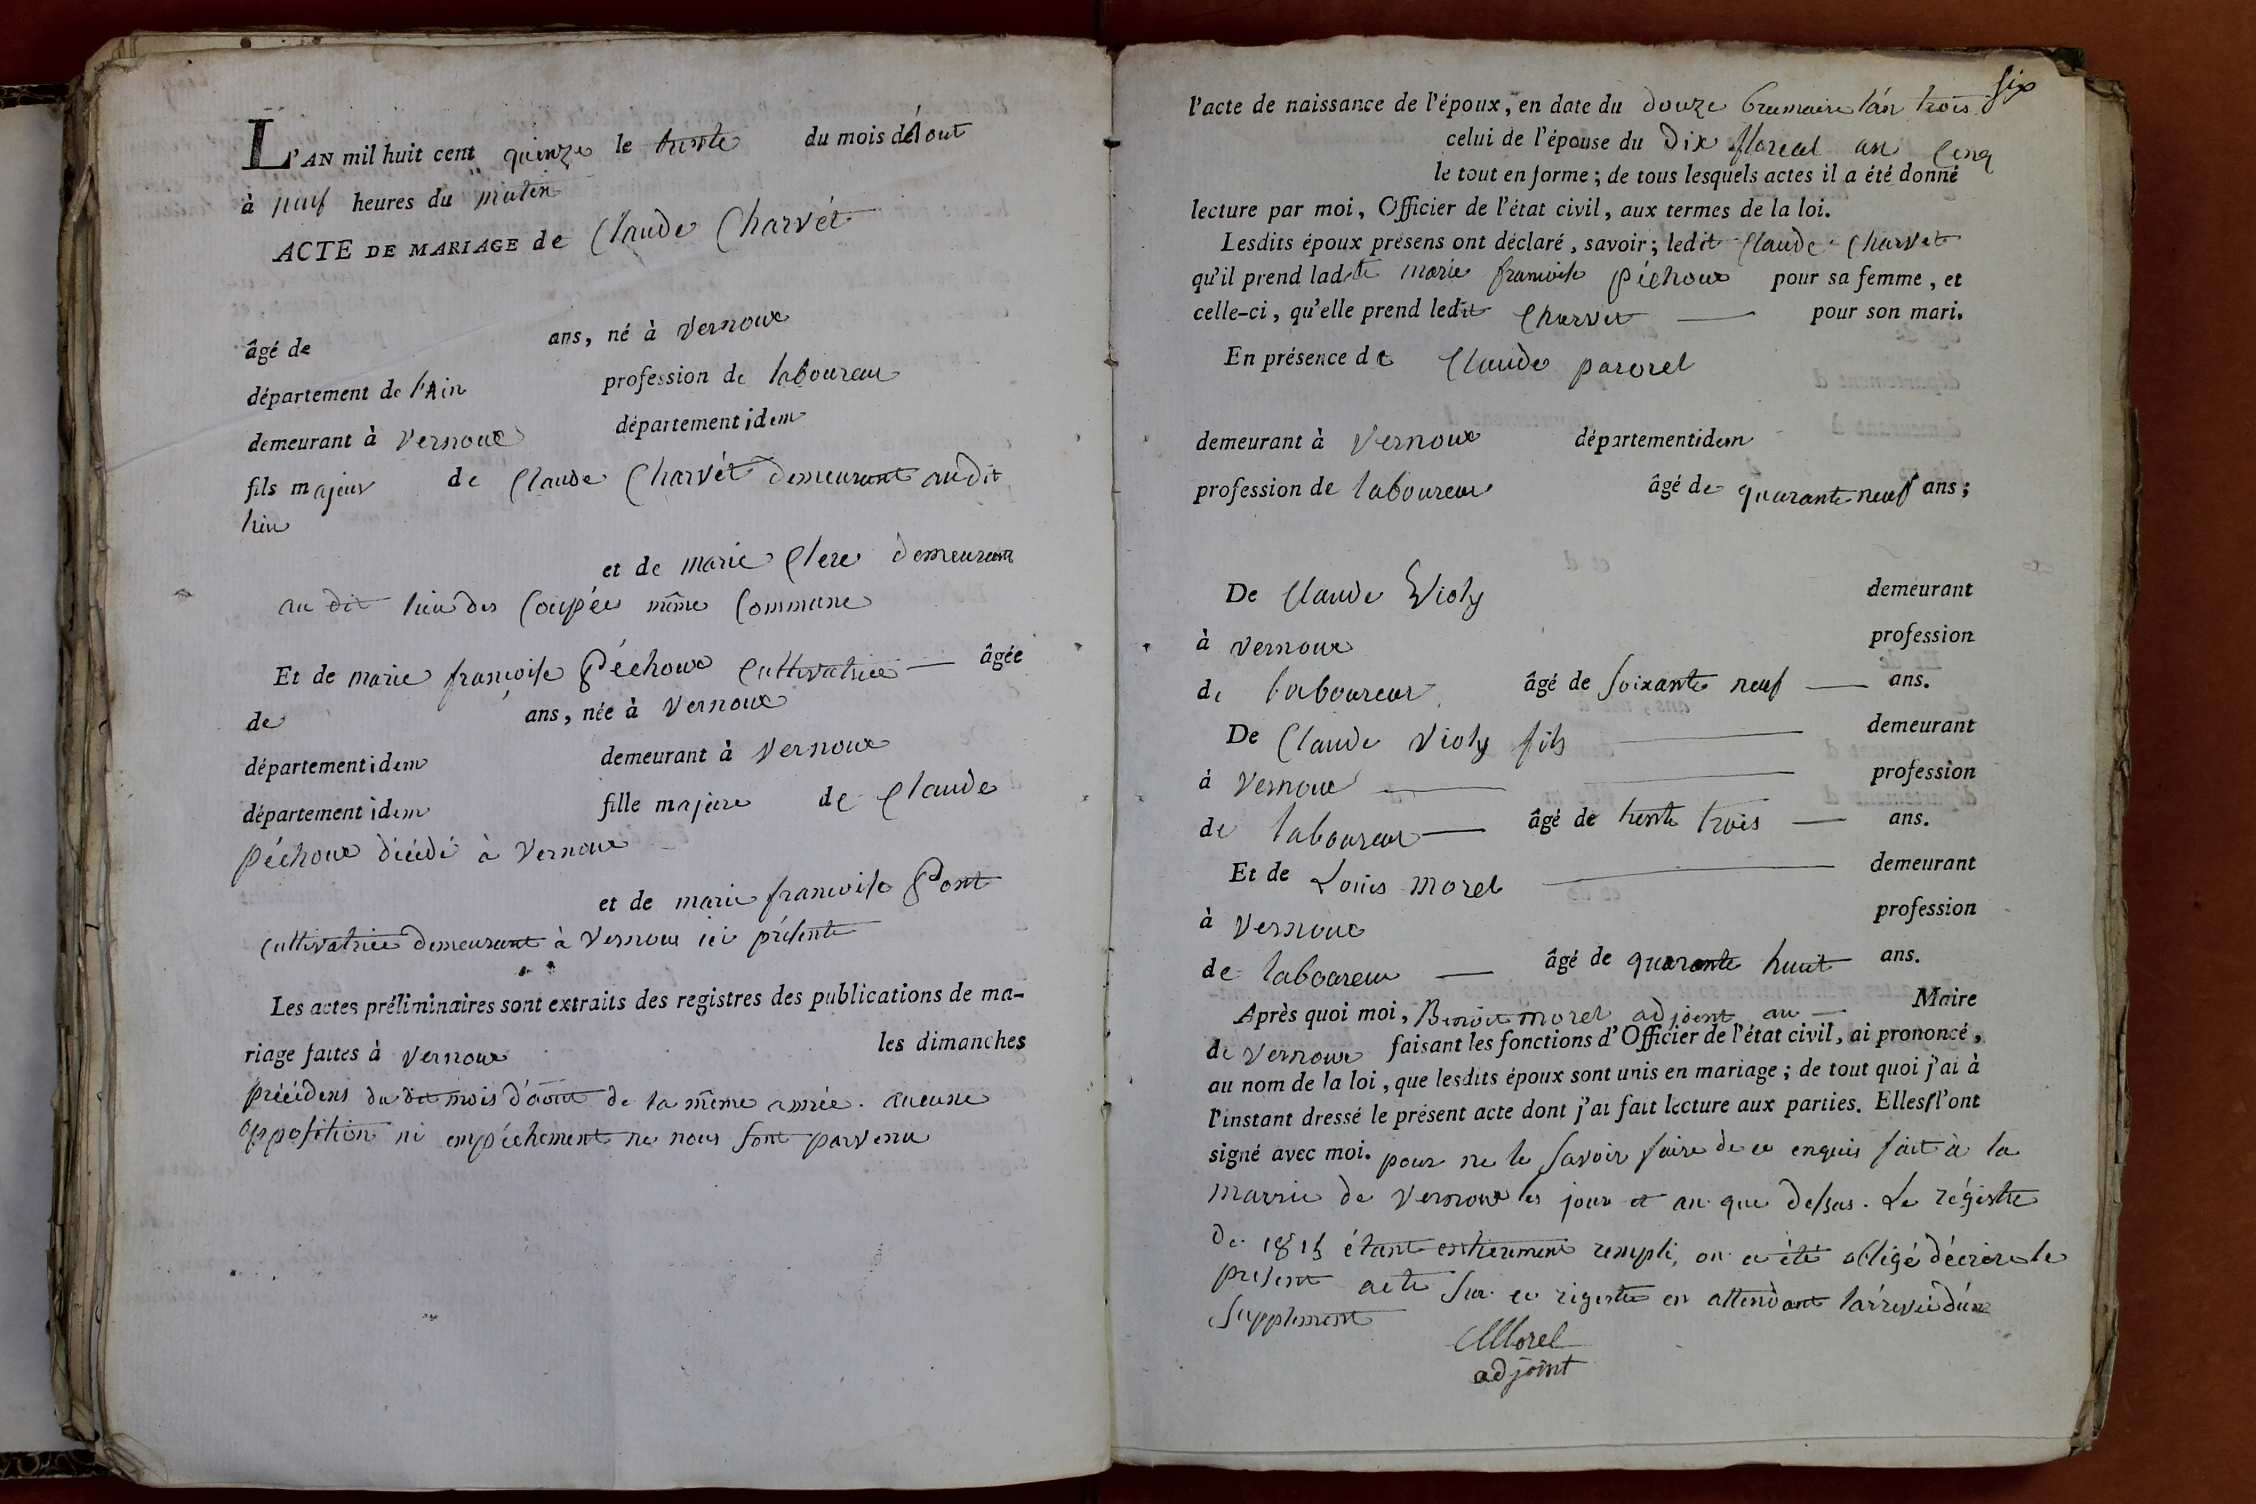 L'AN mil huit cent quinze le trente du mois d'Aout
à neuf heures du matin
ACTE DE MARIAGE de Claude Charvét
âgé de ans, né à Vernoux
département de l'Ain profession de laboureur
demeurant à Vernoux département idem
fils majeur de Claude Charvét demeurant audit
lieu
et de marie Clere demeurant
au dit lieu des Coupées même Commune
Et de marie françoise Péchoux Cultivatrice âgée
de ans, née à Vernoux
département idem demeurant à Vernoux
département idem fille majeure de Claude
Péchoux décédé à Vernoux
et de marie francoise Pont
Cultivatrice demeurant à Vernoux ici présente
Les actes préliminaires sont extraits des registres des publications de ma-
riage faites à Vernoux les dimanches
précédens du dit mois d'aout de la même année. aucune
opposition ni empéchement ne nous sont parvenu
six
l'acte de naissance de l'époux, en date du douze brumaire l'an trois
celui de l'épouse du Dix floreal an Cinq
le tout en forme; de tous lesquels actes il a été donné
lecture par moi, Officier de l'état civil, aux termes de la loi.
Lesdits époux présens ont déclaré, savoir; ledit Claude Charvet
qu'il prend ladite marie francoise Péchoux pour sa femme, et
celle-ci, qu'elle prend ledit Charvet pour son mari.
En présence de Claude parorel
demeurant à Vernoux département idem
profession de laboureur âgé de quarante neuf ans;
De Claude Violy demeurant
à Vernoux profession
de laboureur âgé de soixante neuf ans.
De Claude Violy fils demeurant
à Vernoux profession
de laboureur âgé de trente trois ans.
Et de Louis morel demeurant
à Vernoux profession
de laboureur âgé de quarante huit ans.
Après quoi moi, Benoit morel adjoint au Maire
de Vernoux faisant les fonctions d'Officier de l'état civil, ai prononcé,
au nom de la loi, que lesdits époux sont unis en mariage; de tout quoi j'ai à
l'instant dressé le présent acte dont j'ai fait lecture aux parties. Elles l'ont
signé avec moi. pour ne le savoir faire de ce enquis fait à la
mairie de Vernoux les jour et an que dessus. Le régistre
de 1815 étant entierement rempli, on a été obligé d'écrire le
présent acte sur ce registre en attendant l'arrivée d'un
supplement
Morel
adjoint